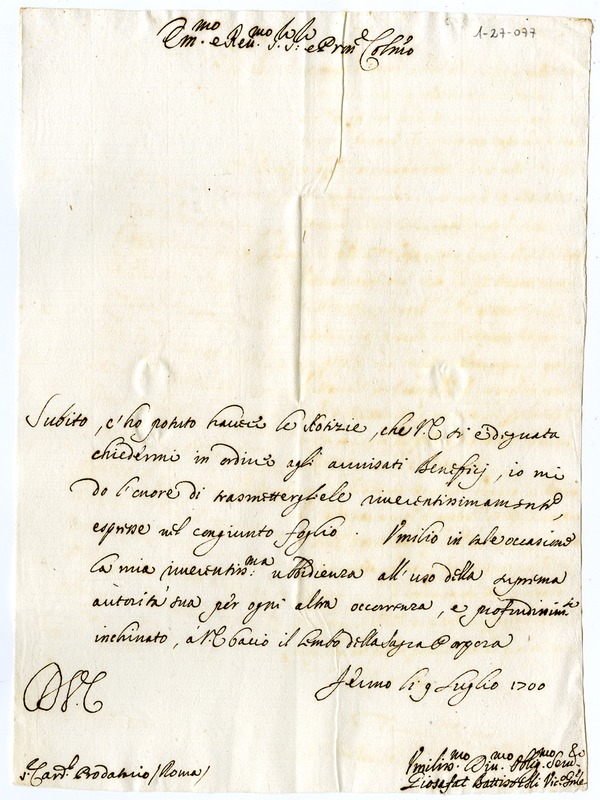 Em.mo e Reu.mo S.r S.r e Pron.e Col.mo
1-27-077
Subito, c'ho potuto hauere le Notizie, che V.E. si è degnata
chiedermi in ordine agli auuisati Beneficij, io mi
do l'cuore di trasmettergliele riuerentissimamente,
espresse nel congiunto foglio. Vmilio in tale occasione
la mia riuerentiss.ma ubbidienza all'uso della suprema
autorità sua per ogni altra occorrenza, e profundissim.te
inchinato, à V.E. bacio il lembo della Sagra Porpora
Fermo li 9 Luglio 1700
D.V.E.
S.r Card.l Prodatario (Roma)
Vmiliss.mo Diu.mo Oblig.mo Seru.re
Giosafat Battistelli Vic.o Gnle